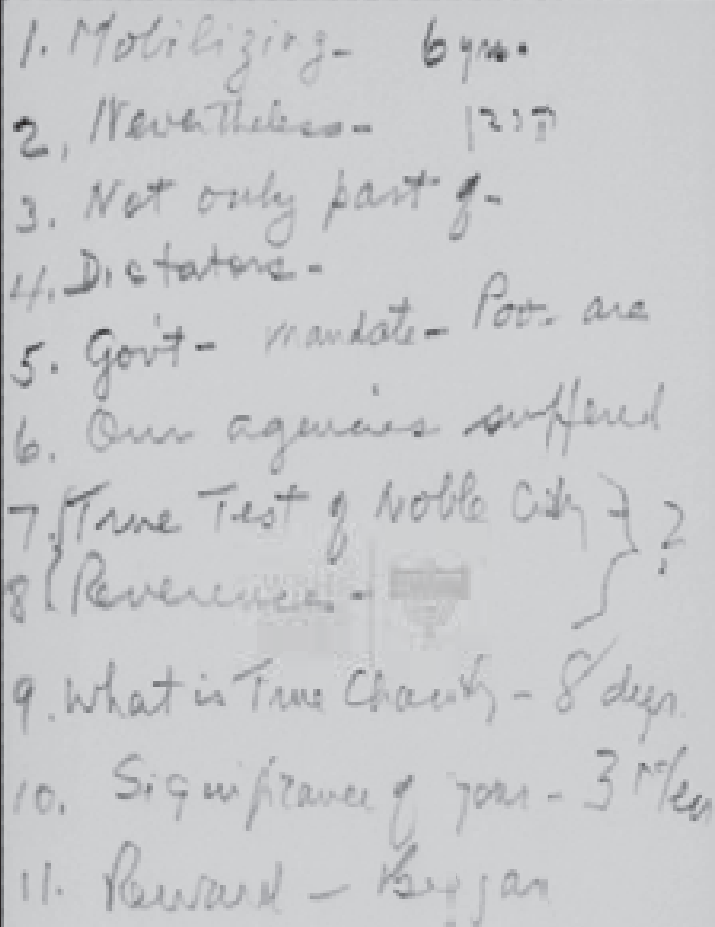 1. Mobilizing - 6 yrs.
2. Nevertheless -
3. Not only part of -
4. Dictators -
5. Gov't - mandate - Poor are
6. Our agencies suffered
7. True Test of Noble City } ?
8 Reverences -
9. What is True Charity - 8 degr.
10. Significance of - 3
11. Reward - Beggar